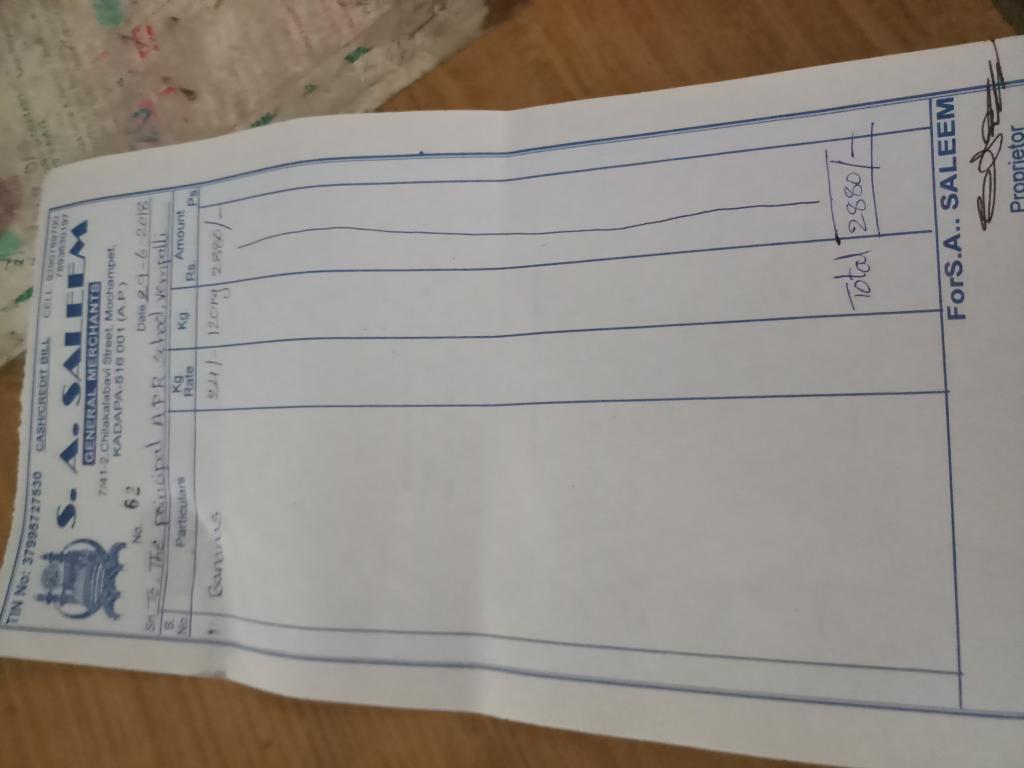 TIN No: 37995727530 CASH/CREDIT BILL CELL
S. A. SALEEM
GENERAL MERCHANTS
7/41-2, Chilakalabavi Street, Mochampet,
KADAPA-516 001 (A.P)
No. 62 Date 29-6-2018
Sri To The principal APR school, Vempalli
S. No. Particulars Kg Rate Kg Amount Rs Ps
24/- 120 Kg 2880/-
Total 2880/-
For S.A.. SALEEM
Proprietor